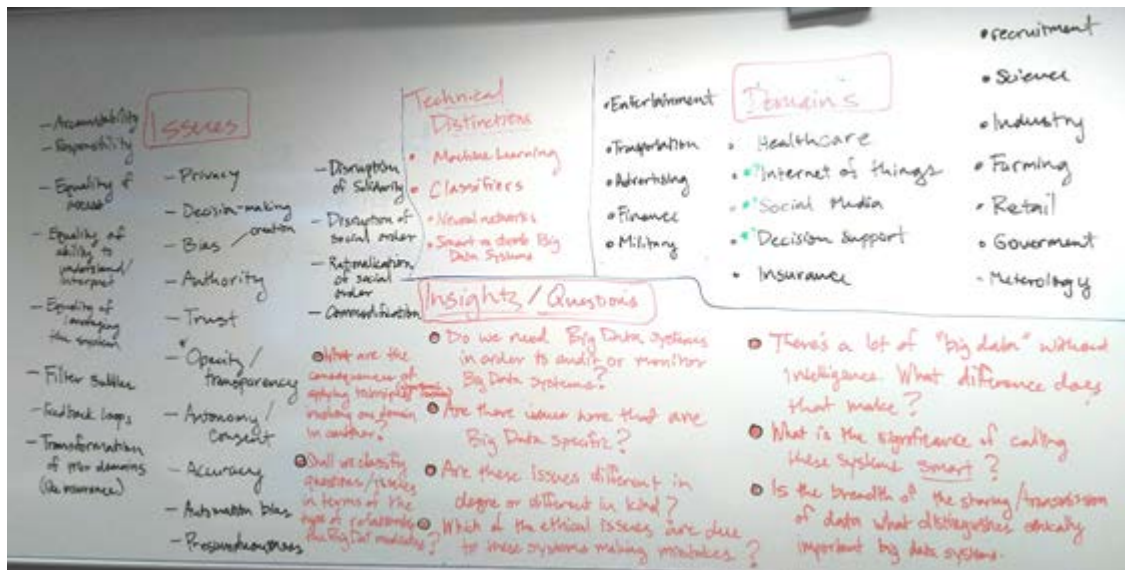 Issues
- Accountability
- Responsibility
- Equality of
access
- Equality of
ability to
understand/
interpret
- Equality of
leveraging
the system
- Filter bubbles
- Feedback loops
- Transformation
of prior domains
(insurance)
- Privacy
- Decision-making
creation
- Bias
- Authority
- Trust
- Opacity/
transparency
- Autonomy/
Consent
- Accuracy
- Automation bias
- Disruption
of Solidarity
- Disruption of
social order
- Rationalization
of social
order
- Commodification
Technical
Distinctions
• Machine Learning
• Classifiers
• Neural networks
• Smart vs dumb Big
Data Systems
Domains
• Entertainment
• Transportation
• Advertising
• Finance
• Military
• Healthcare
• Internet of things
• Social Media
• Decision Support
• Insurance
• recruitment
• Science
• Industry
• Farming
• Retail
• Goverment
- Meterology
Insights / Questions
What are the
consequences of
applying techniques
in one domain
in another?
Shall we classify
questions/issues
in terms of the
type of relationship
the Big Dat mediates?
Do we need Big Data systems
in order to audit or monitor
Big Data Systems?
Are there issues here that are
Big Data specific?
Are these Issues different in
degree or different in kind?
Which of the ethical issues are due
to these systems making mistakes?
There's a lot of "big data" without
intelligence. What difference does
that make?
What is the significance of calling
these systems smart?
Is the breadth of the sharing/transmission
of data what distinguishes ethically
important big data systems.